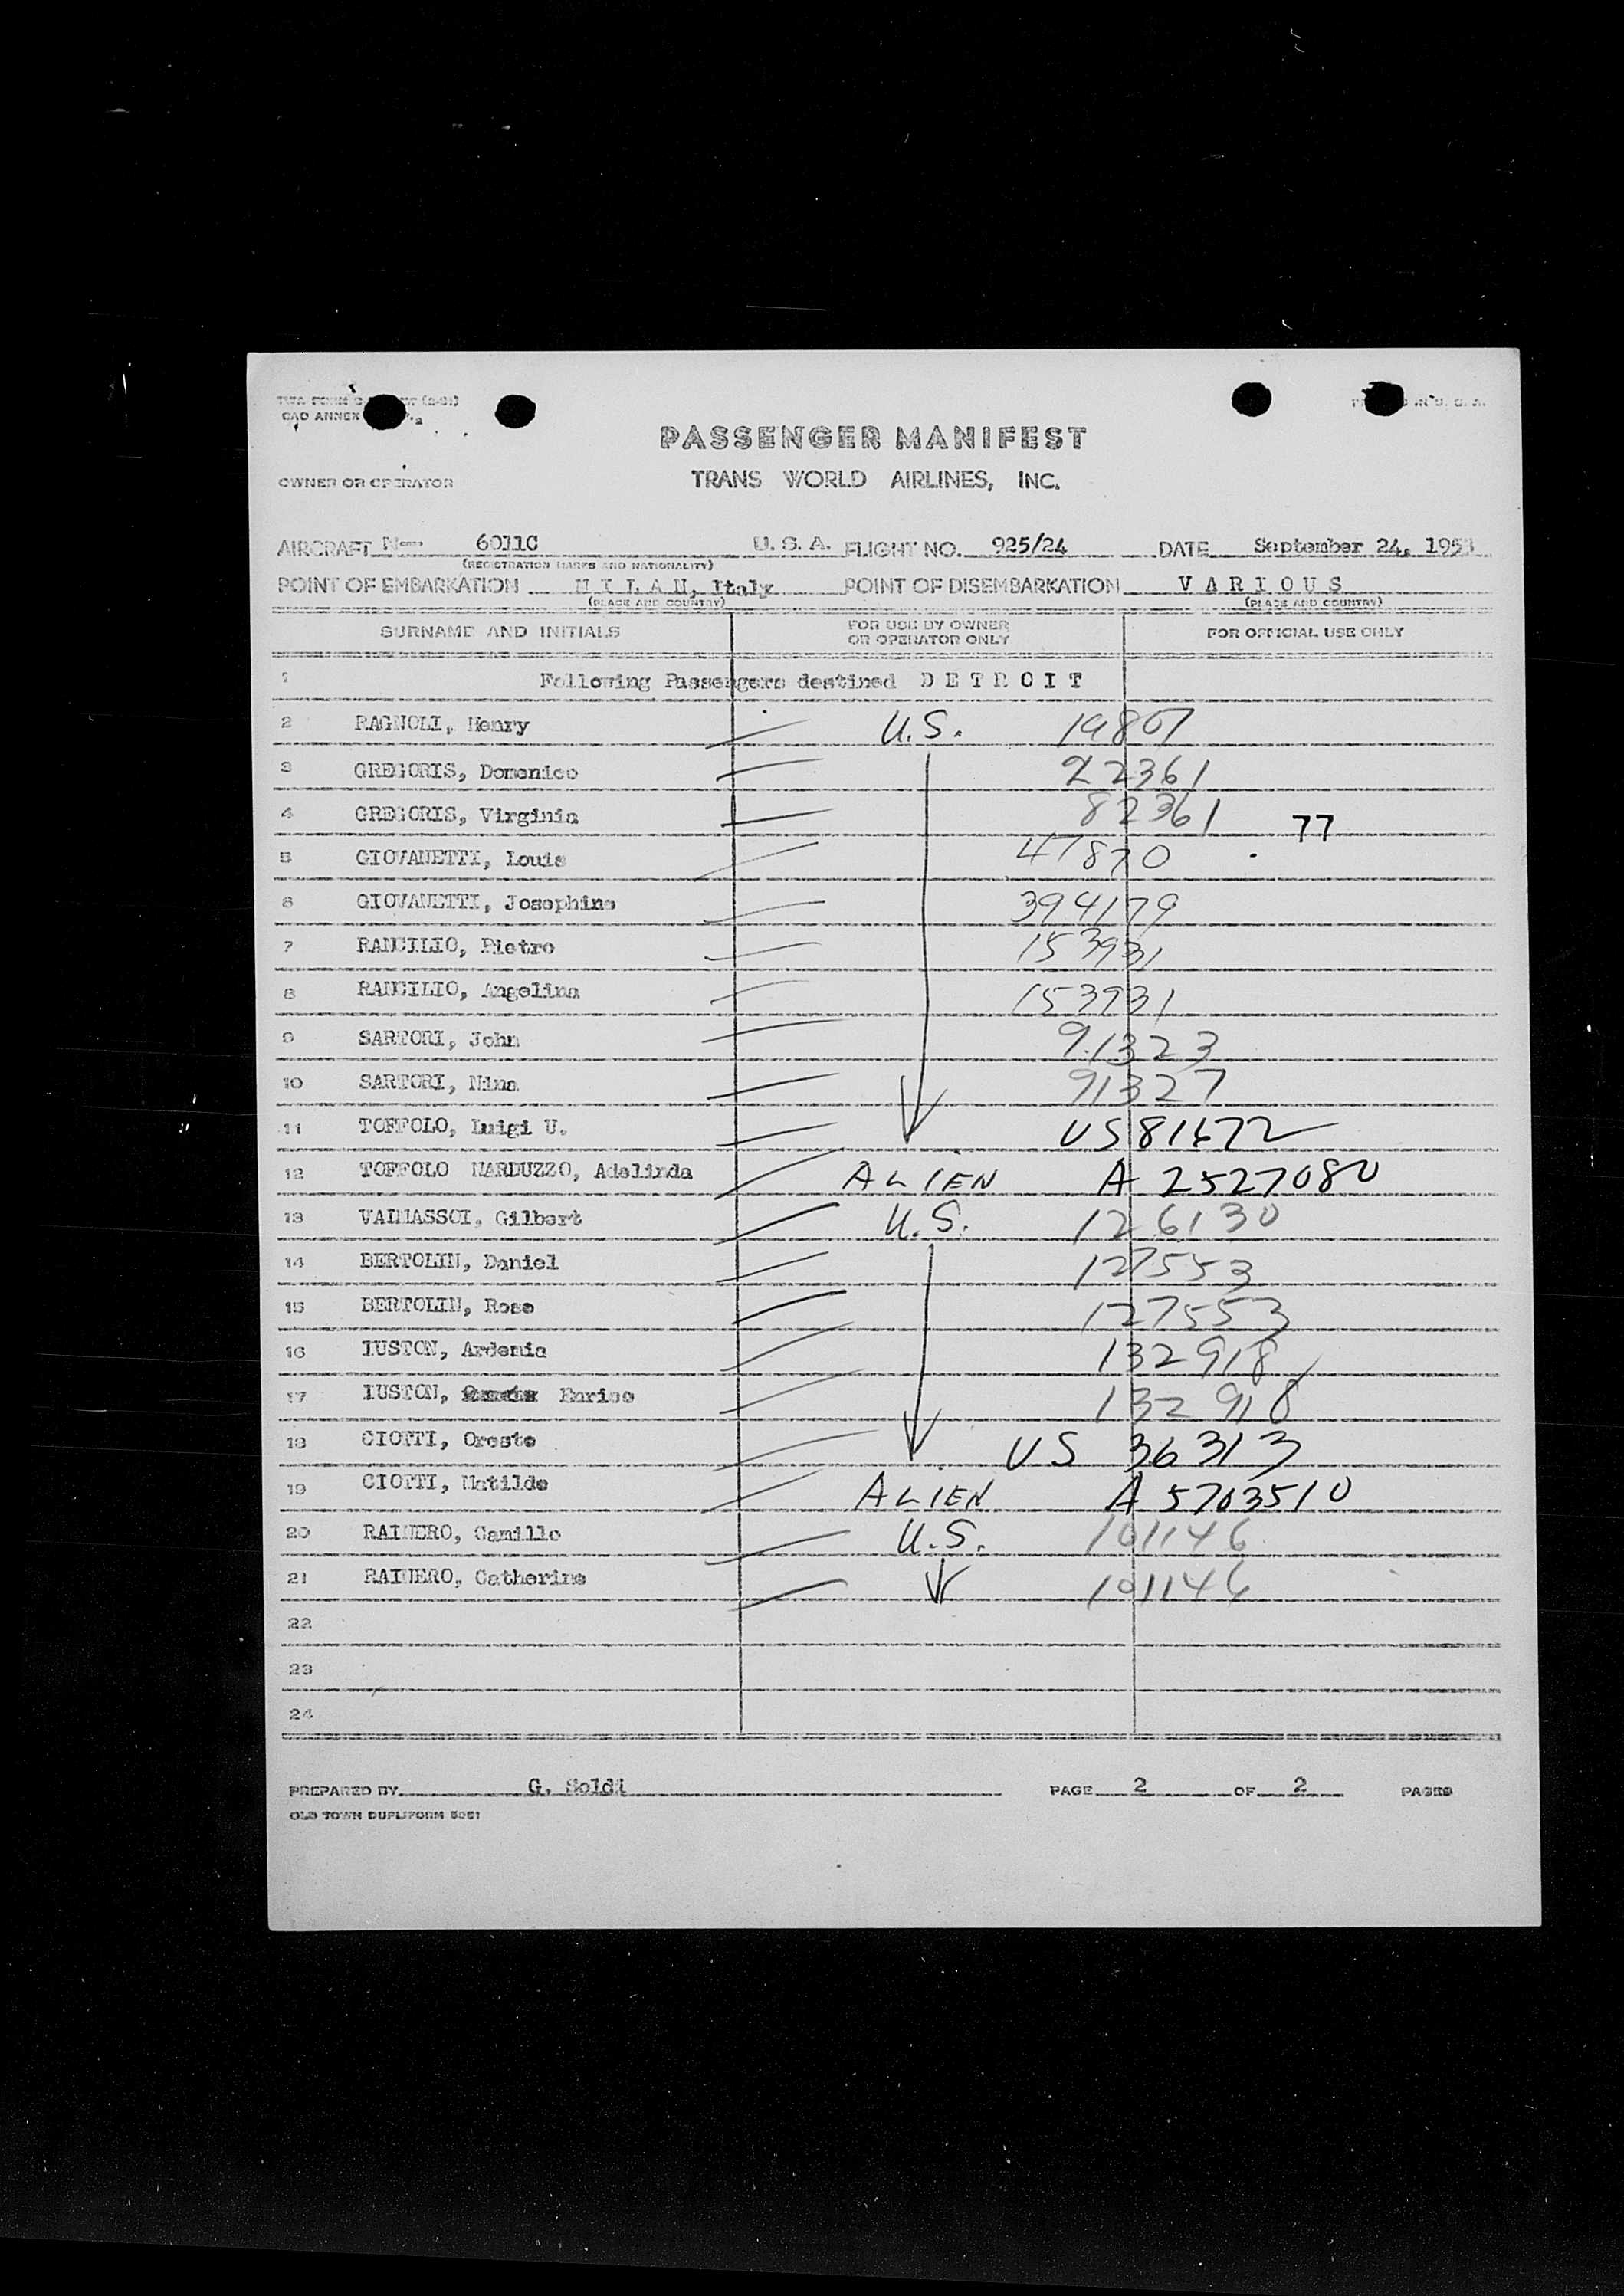 CAO ANNEX
PASSENGER MANIFEST
OWNER OR OPERATOR TRANS WORLD AIRLINES, INC.
AIRCRAFT N— 6011C U. S. A. FLIGHT NO. 925/24 DATE September 24, 195
(REGISTRATION MARKS AND NATIONALITY)
POINT OF EMBARKATION M I L A N, Italy POINT OF DISEMBARKATION V A R I O U S
(PLACE AND COUNTRY) (PLACE AND COUNTRY)
SURNAME AND INITIALS FOR USE BY OWNER OR OPERATOR ONLY FOR OFFICIAL USE ONLY
1 Following Passengers destined D E T R O I T
2 RAGNOLI, Henry U.S. 19807
3 GREGORIS, Domenico 22361
4 GREGORIS, Virginia 82361 77
5 GIOVANETTI, Louis 47870
6 GIOVANETTI, Josephine 394179
7 RANCILIO, Pietro 153931
8 RANCILIO, Angelina 153931
9 SARTORI, John 91323
10 SARTORI, Nina 91327
11 TOFFOLO, Luigi U. US 81672
12 TOFFOLO NARDUZZO, Adelinda ALIEN A 2527080
13 Gilbert U.S. 126130
14 BERTOLIN, Daniel 127553
15 BERTOLIN, Rose 127553
16 IUSTON, Ardemia 132918
17 IUSTON, Enrico 132918
18 CIOTTI, Oreste US 36313
19 CIOTTI, Matilde ALIEN A 5703510
20 RAINERO, Camillo U.S. 101146
21 RAINERO, Catherine 101146
22
23
24
PREPARED BY G. Soldi PAGE 2 OF 2 PAGES
OLD TOWN DUPLIFORM 5051